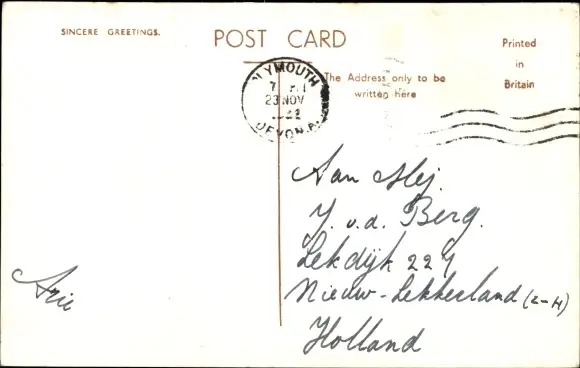 SINCERE GREETINGS.
POST CARD
Printed
in
Britain
The Address only to be
written here
PLYMOUTH
23 NOV
DEVON
Aan Mej.
J. v.d. Berg.
Lekdijk 227
Nieuw-Lekkerland (Z-H)
Holland
Arie